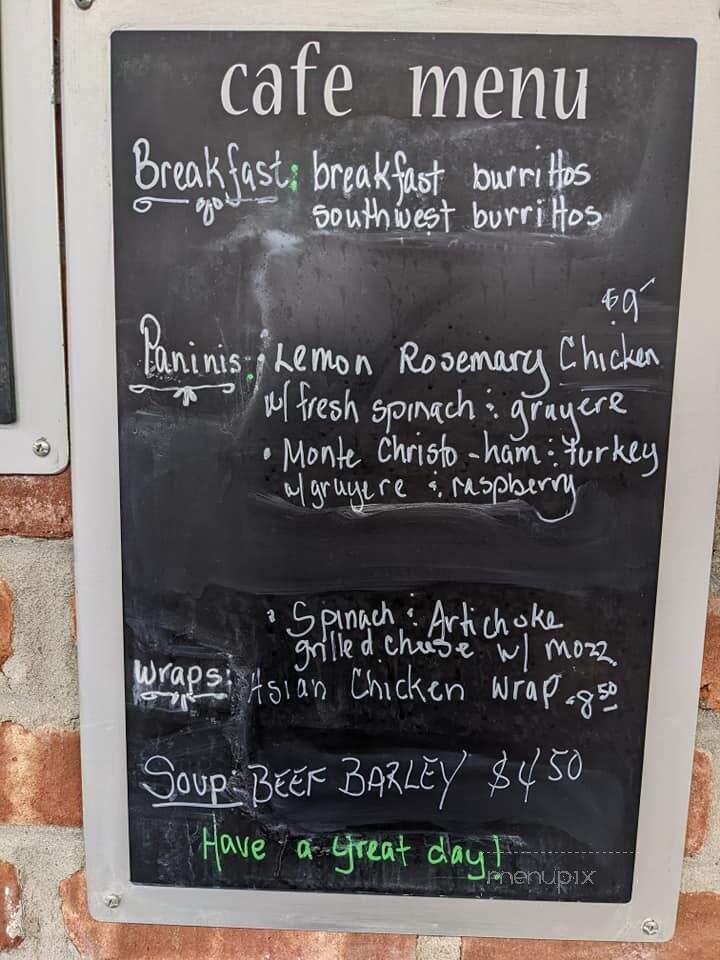 cafe menu
Breakfast: breakfast burritos
southwest burritos
$9
Paninis: Lemon Rosemary Chicken
w/ fresh spinach & gruyere
• Monte Christo - ham & turkey
w/ gruyere & raspberry
• Spinach & Artichoke
grilled cheese w/ mozz
Wraps: Asian Chicken Wrap 8.50
Soup: BEEF BARLEY $4.50
Have a great day!
menupix